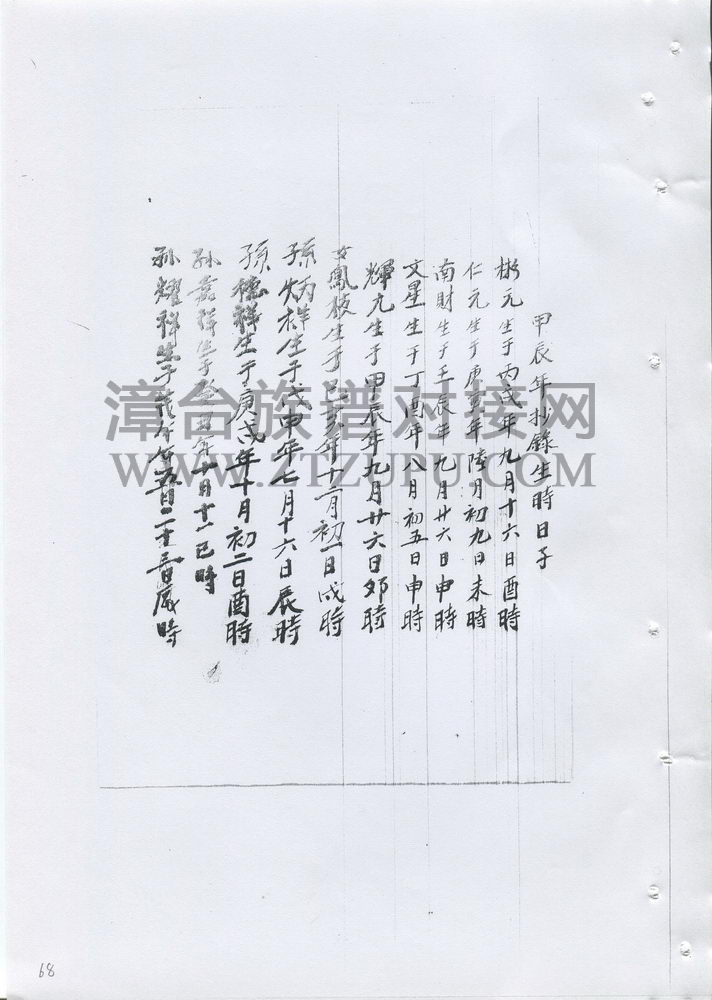 甲辰年抄錄生時日子
彬元生于丙戌年九月十六日酉時
仁元生于庚寅年陸月初九日未時
南財生于壬辰年九月廿六日申時
文星生于丁酉年八月初五日申時
輝九生于甲辰年九月廿六日卯時
女鳳枝生于己亥年十二月初一日戌時
孫炳祥生于戊申年七月十六日辰時
孫德祥生于庚戌年十月初二日酉時
孙嘉祥生于癸丑年十月十一巳時
孙耀祥生于年五月二十三日辰時
漳台族谱对接网
WWW.ZTZUPU.COM
68